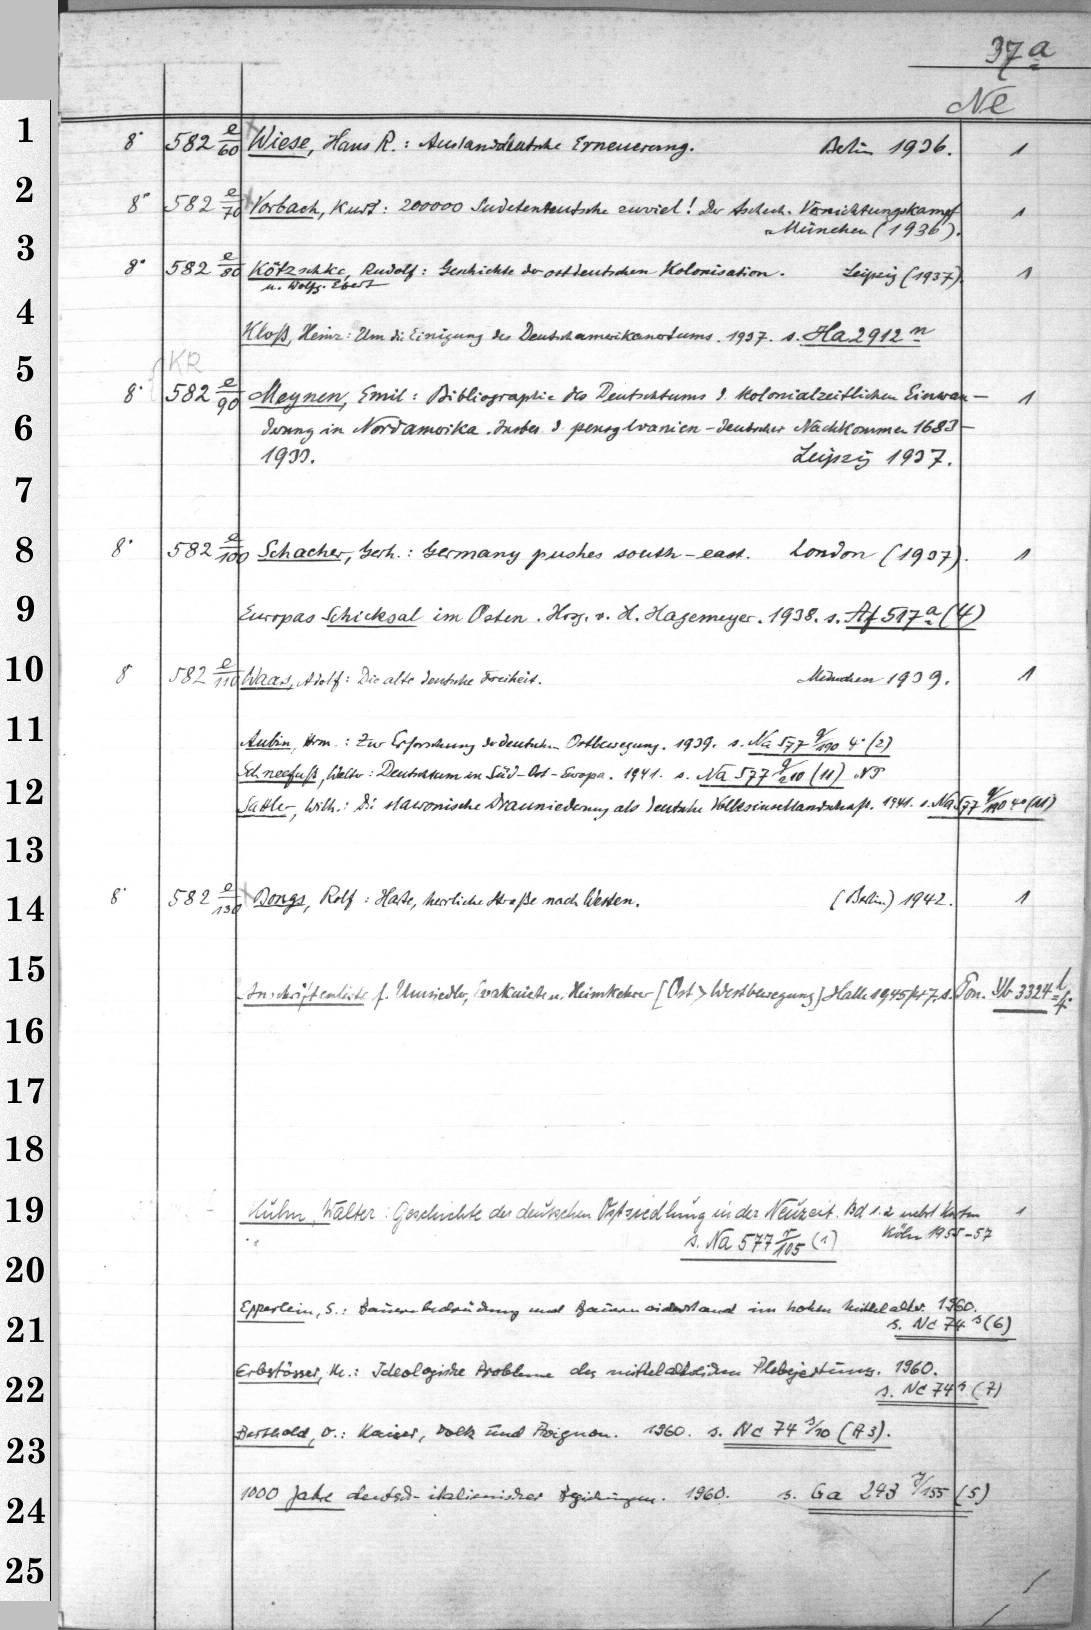 37 a
Ne
1
8° 582 e/60 Wiese, Hans R.: Auslanddeutsche Erneuerung. Berlin 1936. 1
2
8° 582 e/70 Vorbach, Kurt: 200000 Sudetendeutsche zuviel! Der tschech. Vernichtungskampf 1
München (1936).
3
8° 582 e/80 Kötzschke, Rudolf: Geschichte der ostdeutschen Kolonisation. Leipzig (1937). 1
u. Wolfg. Ebert
4
Kloß, Heinz: Um die Einigung des Deutschamerikanertums. 1937. s. Ha 2912 n
5
KR
8° 582 e/90 Meynen, Emil: Bibliographie des Deutschtums d. kolonialzeitlichen Einwan- 1
6
derung in Nordamerika. Insbes. d. pensylvanien-deutscher Nachkommen 1683-
1933. Leipzig 1937.
7
8
8° 582 e/100 Schacher, Gerh.: Germany pushes south-east. London (1937). 1
9
Europas Schicksal im Osten. Hrsg. v. H. Hagemeyer. 1938. s. Af 517 a (4)
10
8° 582 e/110 Waas, Adolf: Die alte deutsche Freiheit. München 1939. 1
11
Aubin, Herm.: Zur Erforschung der deutschen Ostbewegung. 1939. s. Na 577 q/190 4° (2)
Schneefuß, Walter: Deutschtum in Süd-Ost-Europa. 1941. s. Na 577 q/210 (11)
12
Sattler, Wilh.: Die slawonische Drauniederung als deutsche Volksinsellandschaft. 1941. s. Na 577 q/190 4° (11)
13
14
8° 582 e/130 Bongs, Rolf: Harte, herrliche Straße nach Westen. (Berlin) 1942. 1
15
Anschriftenliste f. Umsiedler, Evakuierte u. Heimkehrer [Ost > Westbewegung] Halle 1945/47. s. Pon. Yb 3324 l 4°
16
17
18
19
Kuhn, Walter: Geschichte der deutschen Ostsiedlung in der Neuzeit. Bd 1.2 nebst Karten 1
Köln 1955-57
s. Na 577 r/105 (1)
20
Epperlein, S.: Bauernbedrückung und Bauernwiderstand im hohen Mittelalter. 1960.
21
s. Nc 74 s (6)
Erbstösser, M.: Ideologische Probleme des mittelalterlichen Plebejertums. 1960.
22
s. Nc 74 s (7)
Berthold, O.: Kaiser, Volk und Avignon. 1960. s. Nc 74 s/10 (A3).
23
1000 Jahre deutsch-italienischer Beziehungen. 1960. s. Ga 293 y/155 (5)
24
25